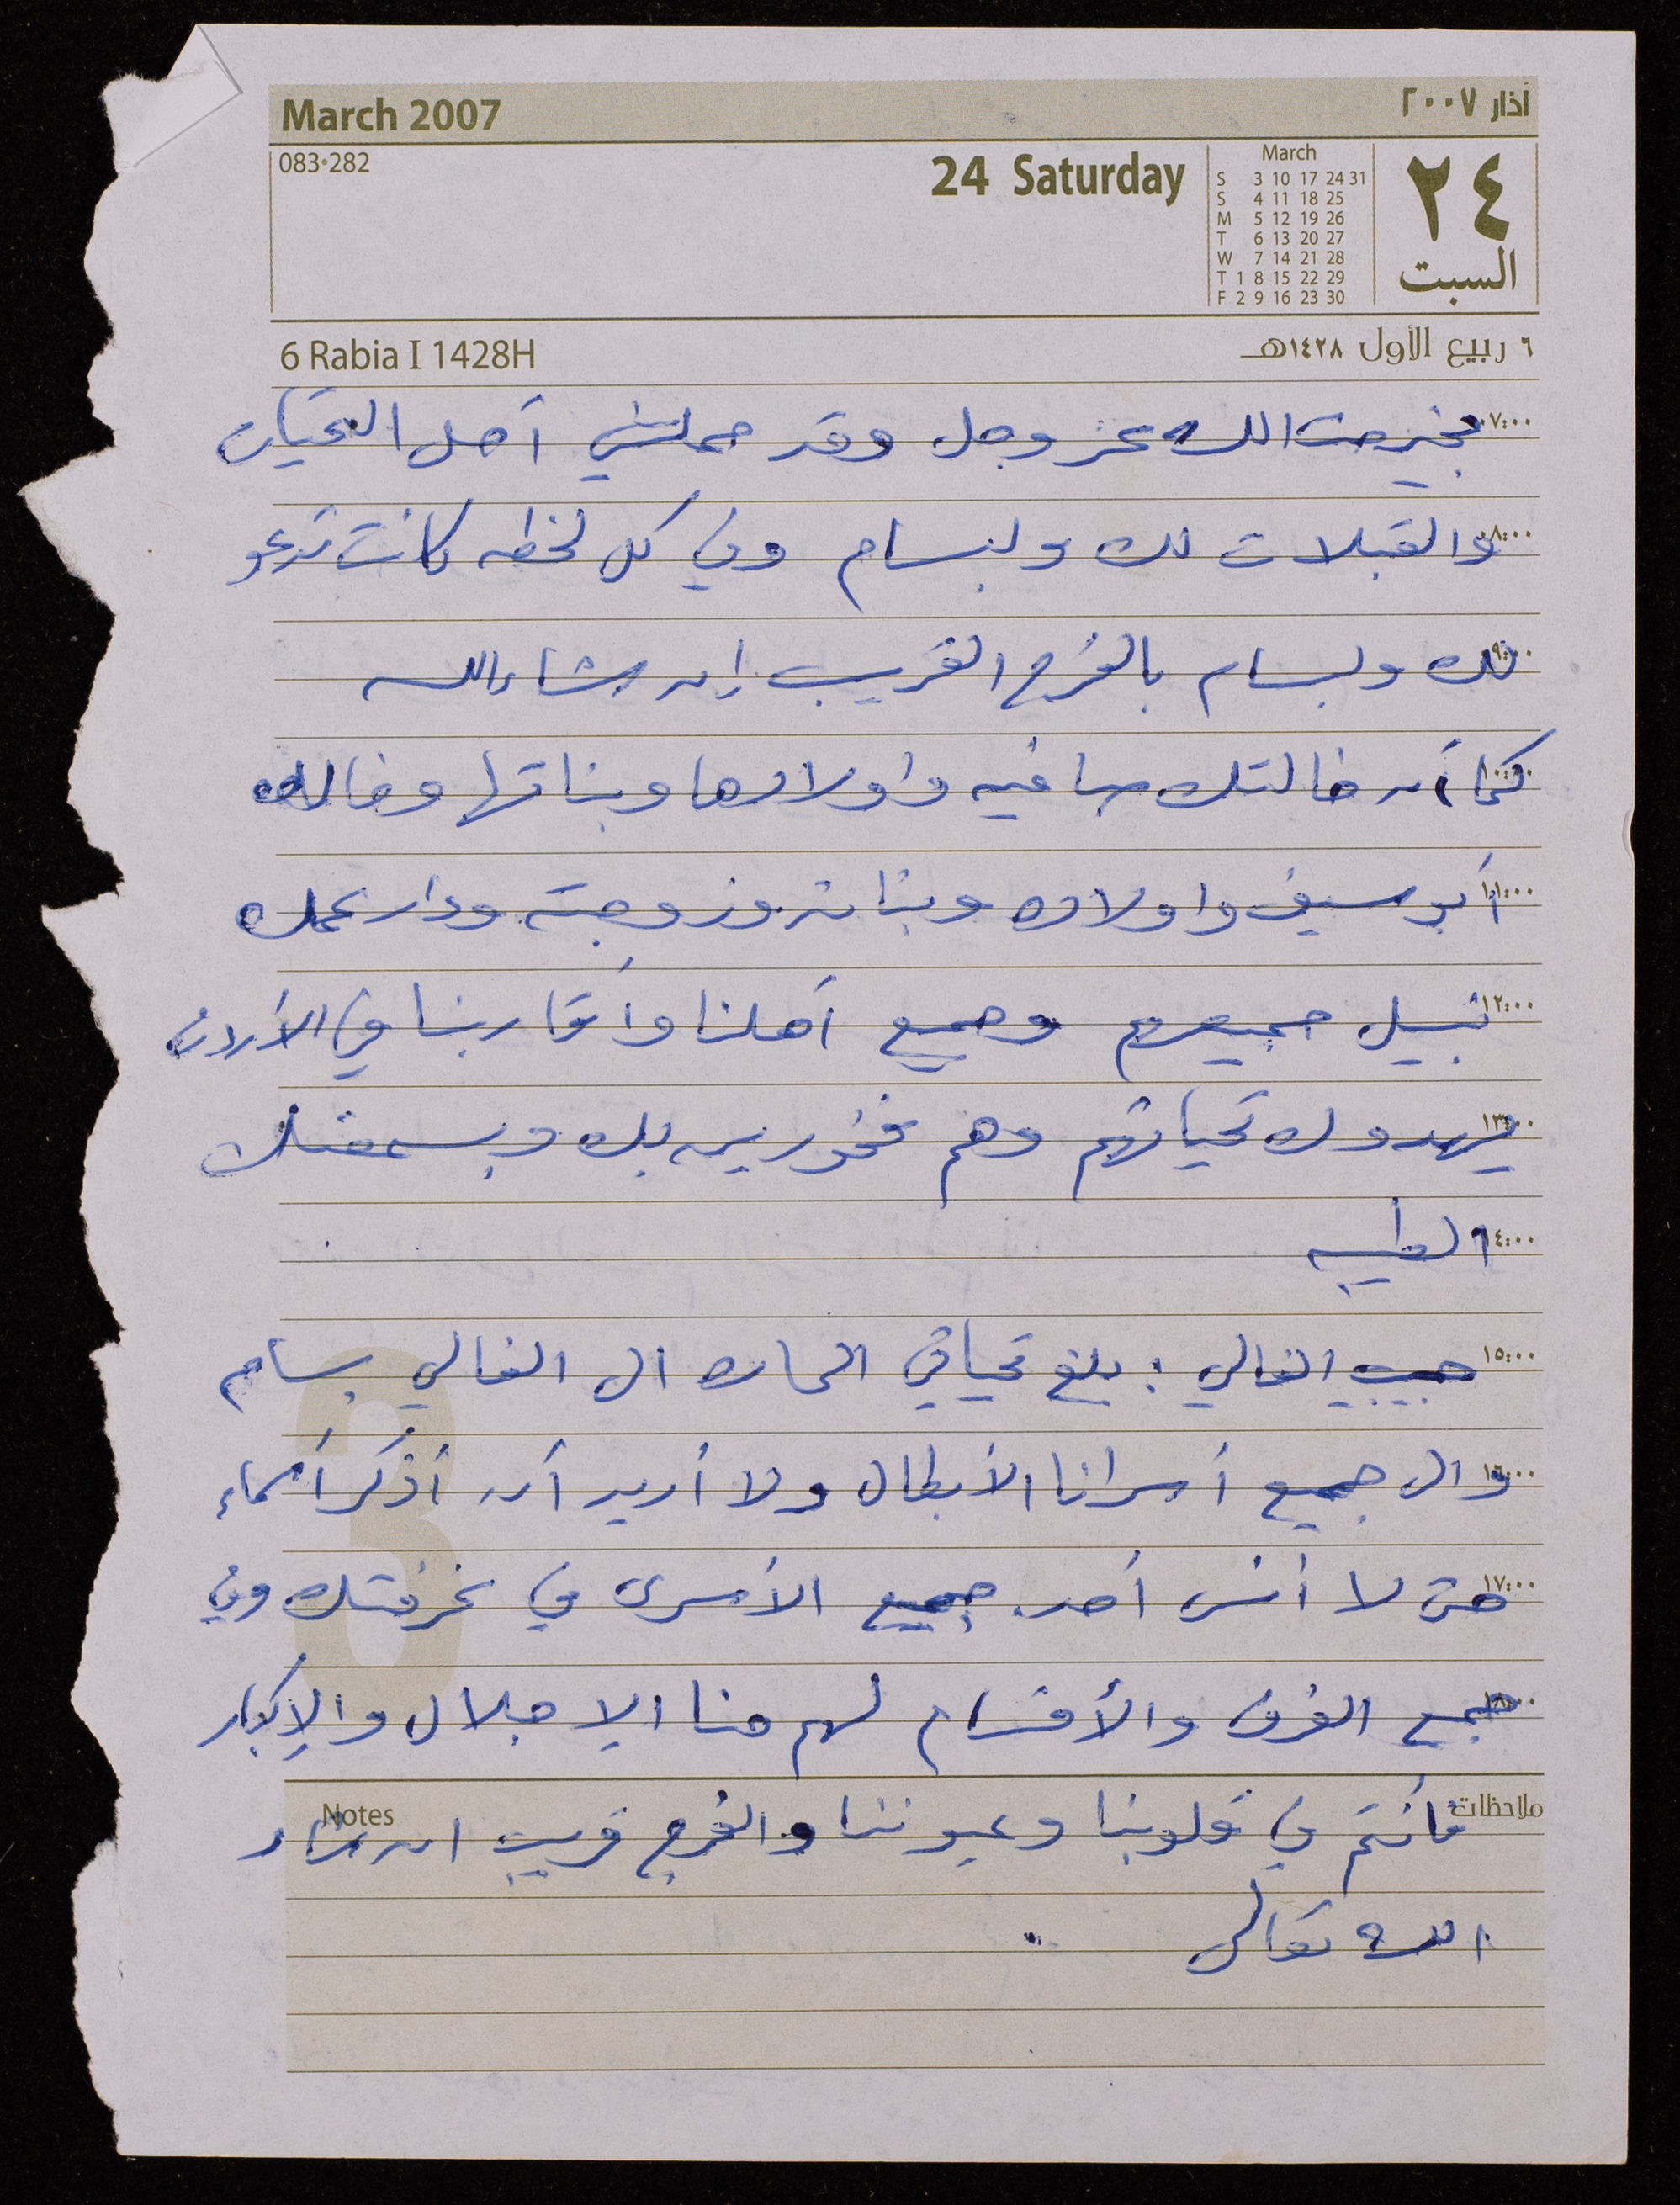 March 2007 آذار ٢٠٠٧
083•282 24 Saturday ٢٤
السبت
March
S 3 10 17 24 31
S 4 11 18 25
M 5 12 19 26
T 6 13 20 27
W 7 14 21 28
T 1 8 15 22 29
F 2 9 16 23 30
6 Rabia I 1428H ٦ ربيع الأول ١٤٢٨هـ
٠٧:٠٠ بخير من الله عز وجل وقد حملتني أحل التحيات
٠٨:٠٠ والقبلات لك ولبسام وفي كل لحظه كانت تدعو
٠٩:٠٠ لك ولبسام بالفرج القريب إن شاء الله
١٠:٠٠ كما أن خالتك صافيه واولادها وبناتها وخالك
١١:٠٠ أبو سيف واولاده وبناته وزوجته ودار عمك
١٢:٠٠ نبيل جميعهم وجميع أهلنا وأقاربنا في الأردن
١٣:٠٠ يهدوك تحياتهم وهم فخورين بك وبسمعتك
١٤:٠٠ الطيبه
١٥:٠٠ حبيبي الغالي : بلغ تحياتي الحاره الى الغالي بسام
١٦:٠٠ والى جميع أسرانا الأبطال ولا أريد أن أذكر أسماء
١٧:٠٠ حتى لا أنسى أحد. جميع الأسرى في غرفتك وفي
١٨:٠٠ جميع الغرف والأقسام لهم منا الإجلال والإكبار
ملاحظات Notes
فأنتم في قلوبنا وعيوننا والفرج قريب ان شاء
الله تعالى ..